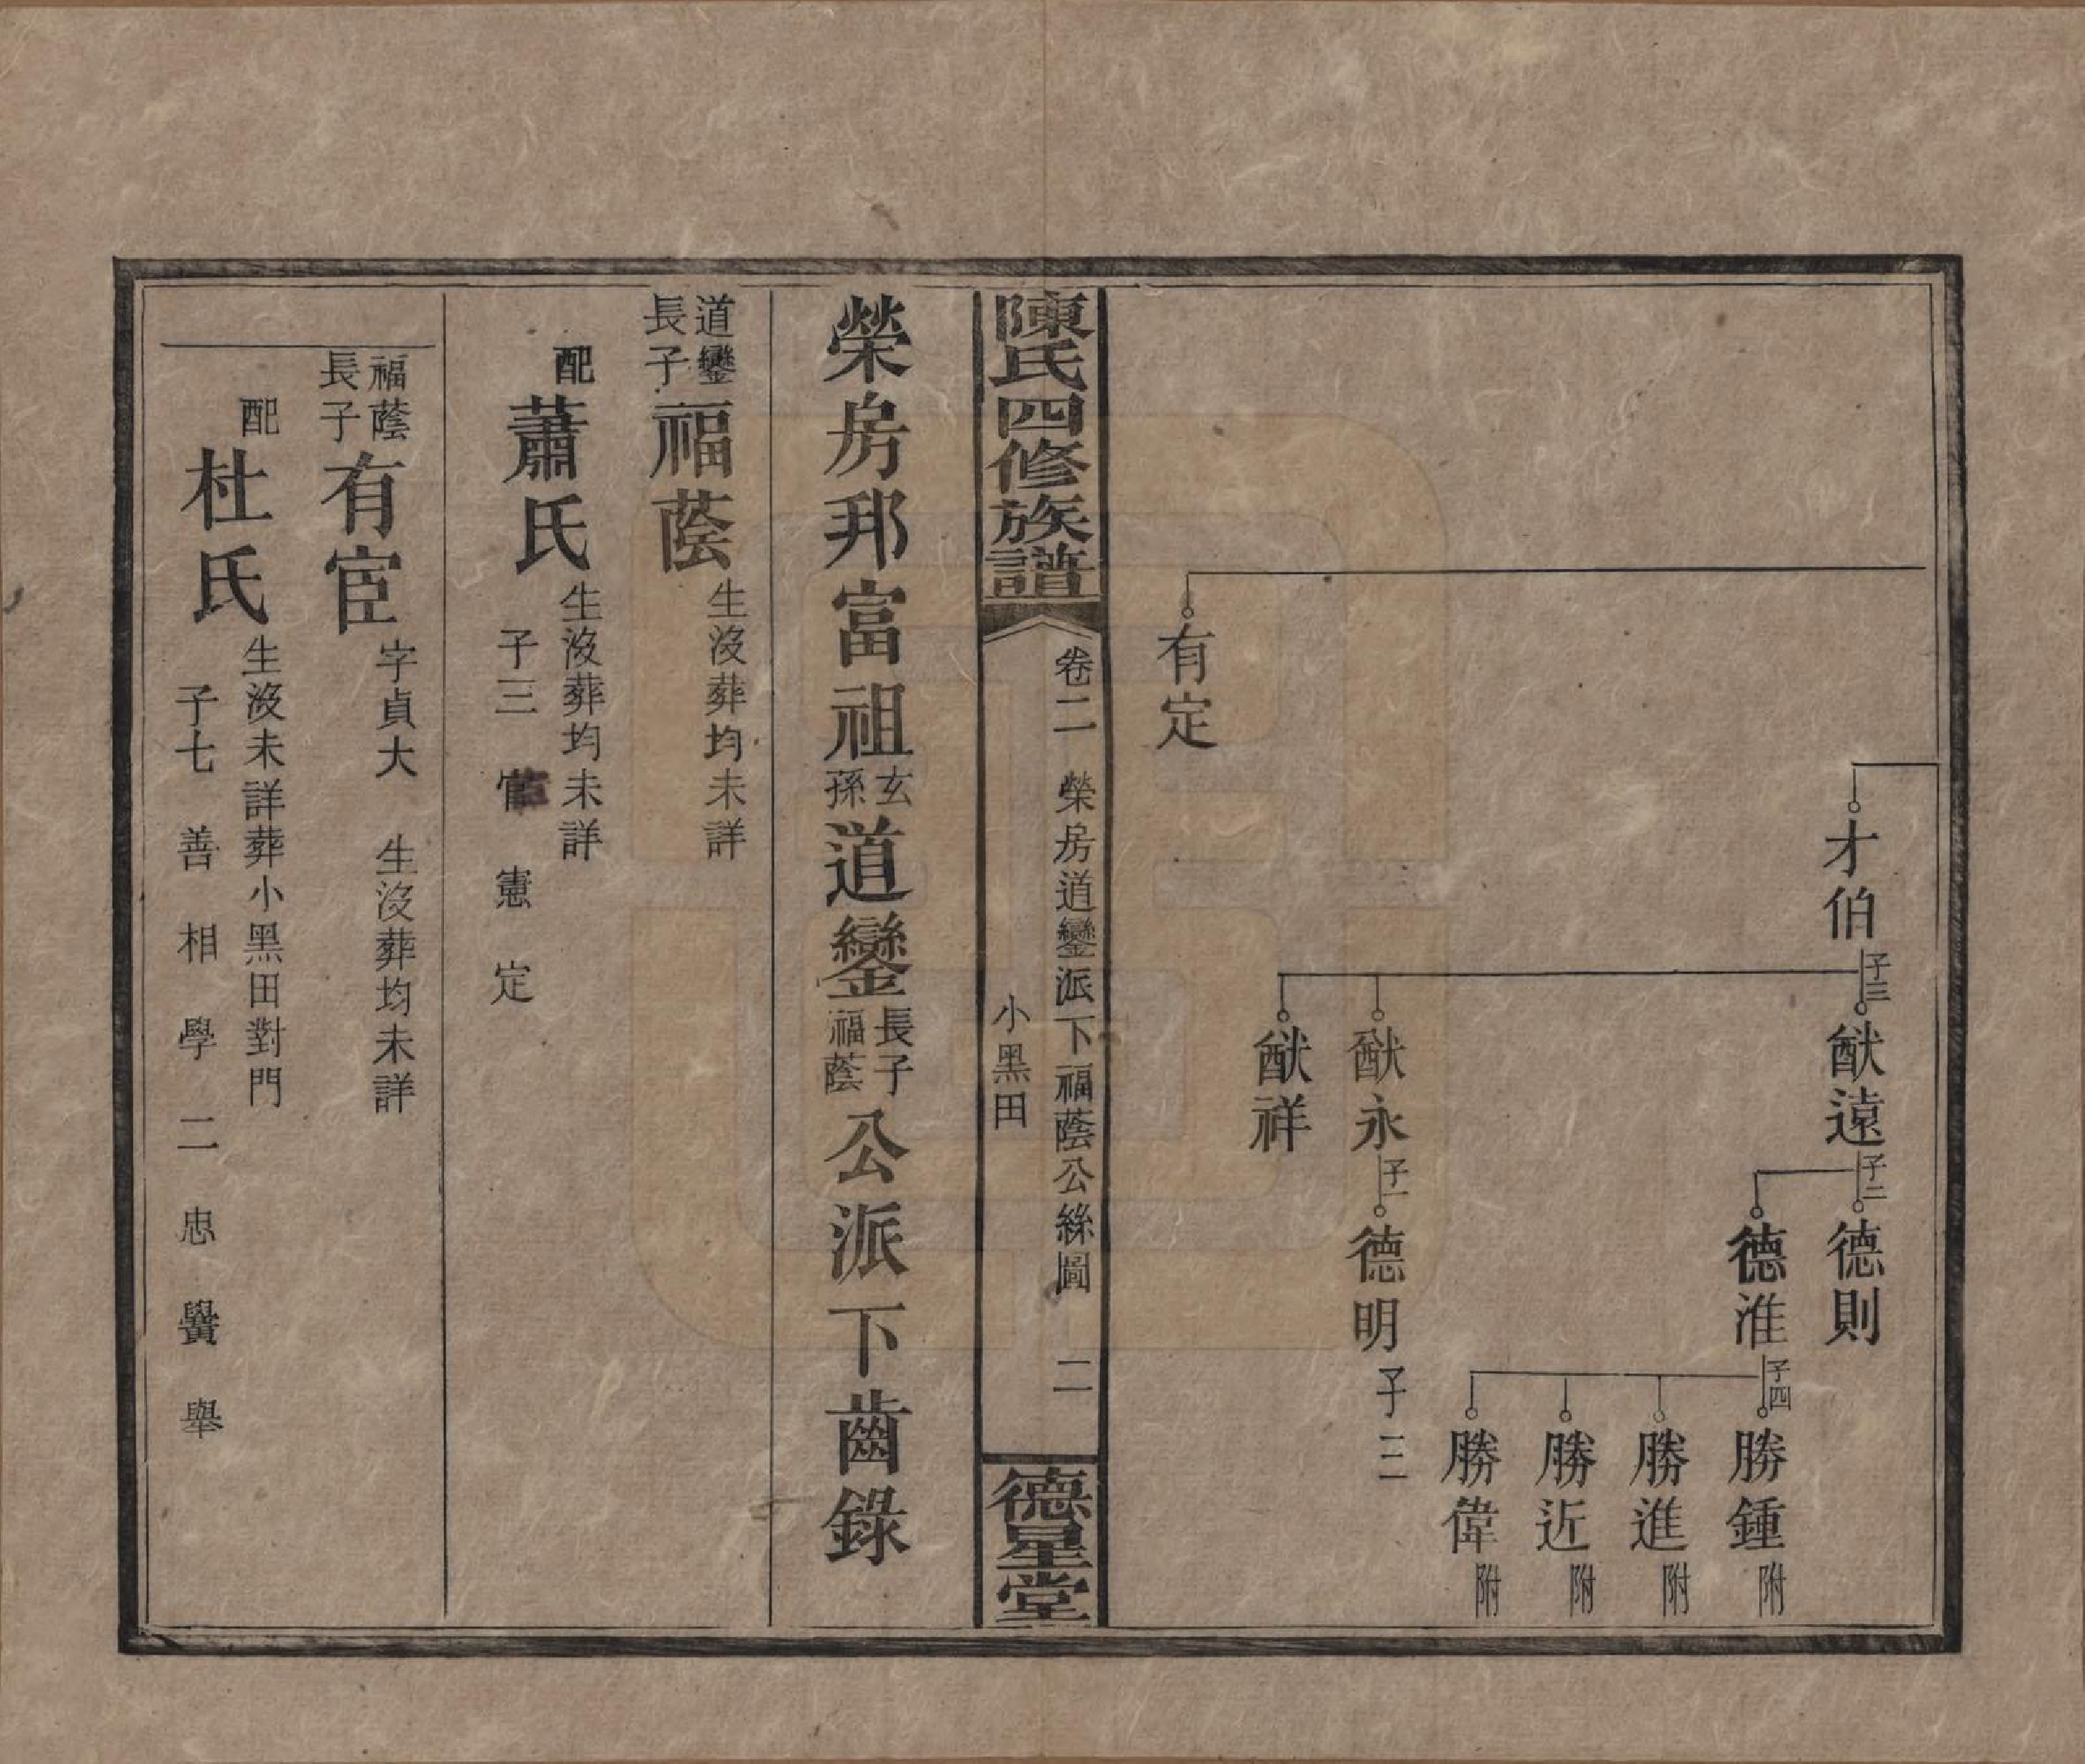 才伯
子三
猷遠
子二
德則
德淮
子四
勝鍾 附
勝進 附
勝近 附
勝偉 附
猷永
子一
德明 子二
猷祥
有定
陳氏四修族譜
卷二 榮房道鑾派下福蔭公絲圖 二
小黑田
德星堂
榮房邦富祖玄孫道鑾長子福蔭公派下齒錄
道鑾長子福蔭 生沒葬均未詳
配蕭氏 生沒葬均未詳
子三 宦 憲 定
福蔭長子有宦 字貞大 生沒葬均未詳
配杜氏 生沒未詳葬小黑田對門
子七 善 相 學 二 忠 黌 舉